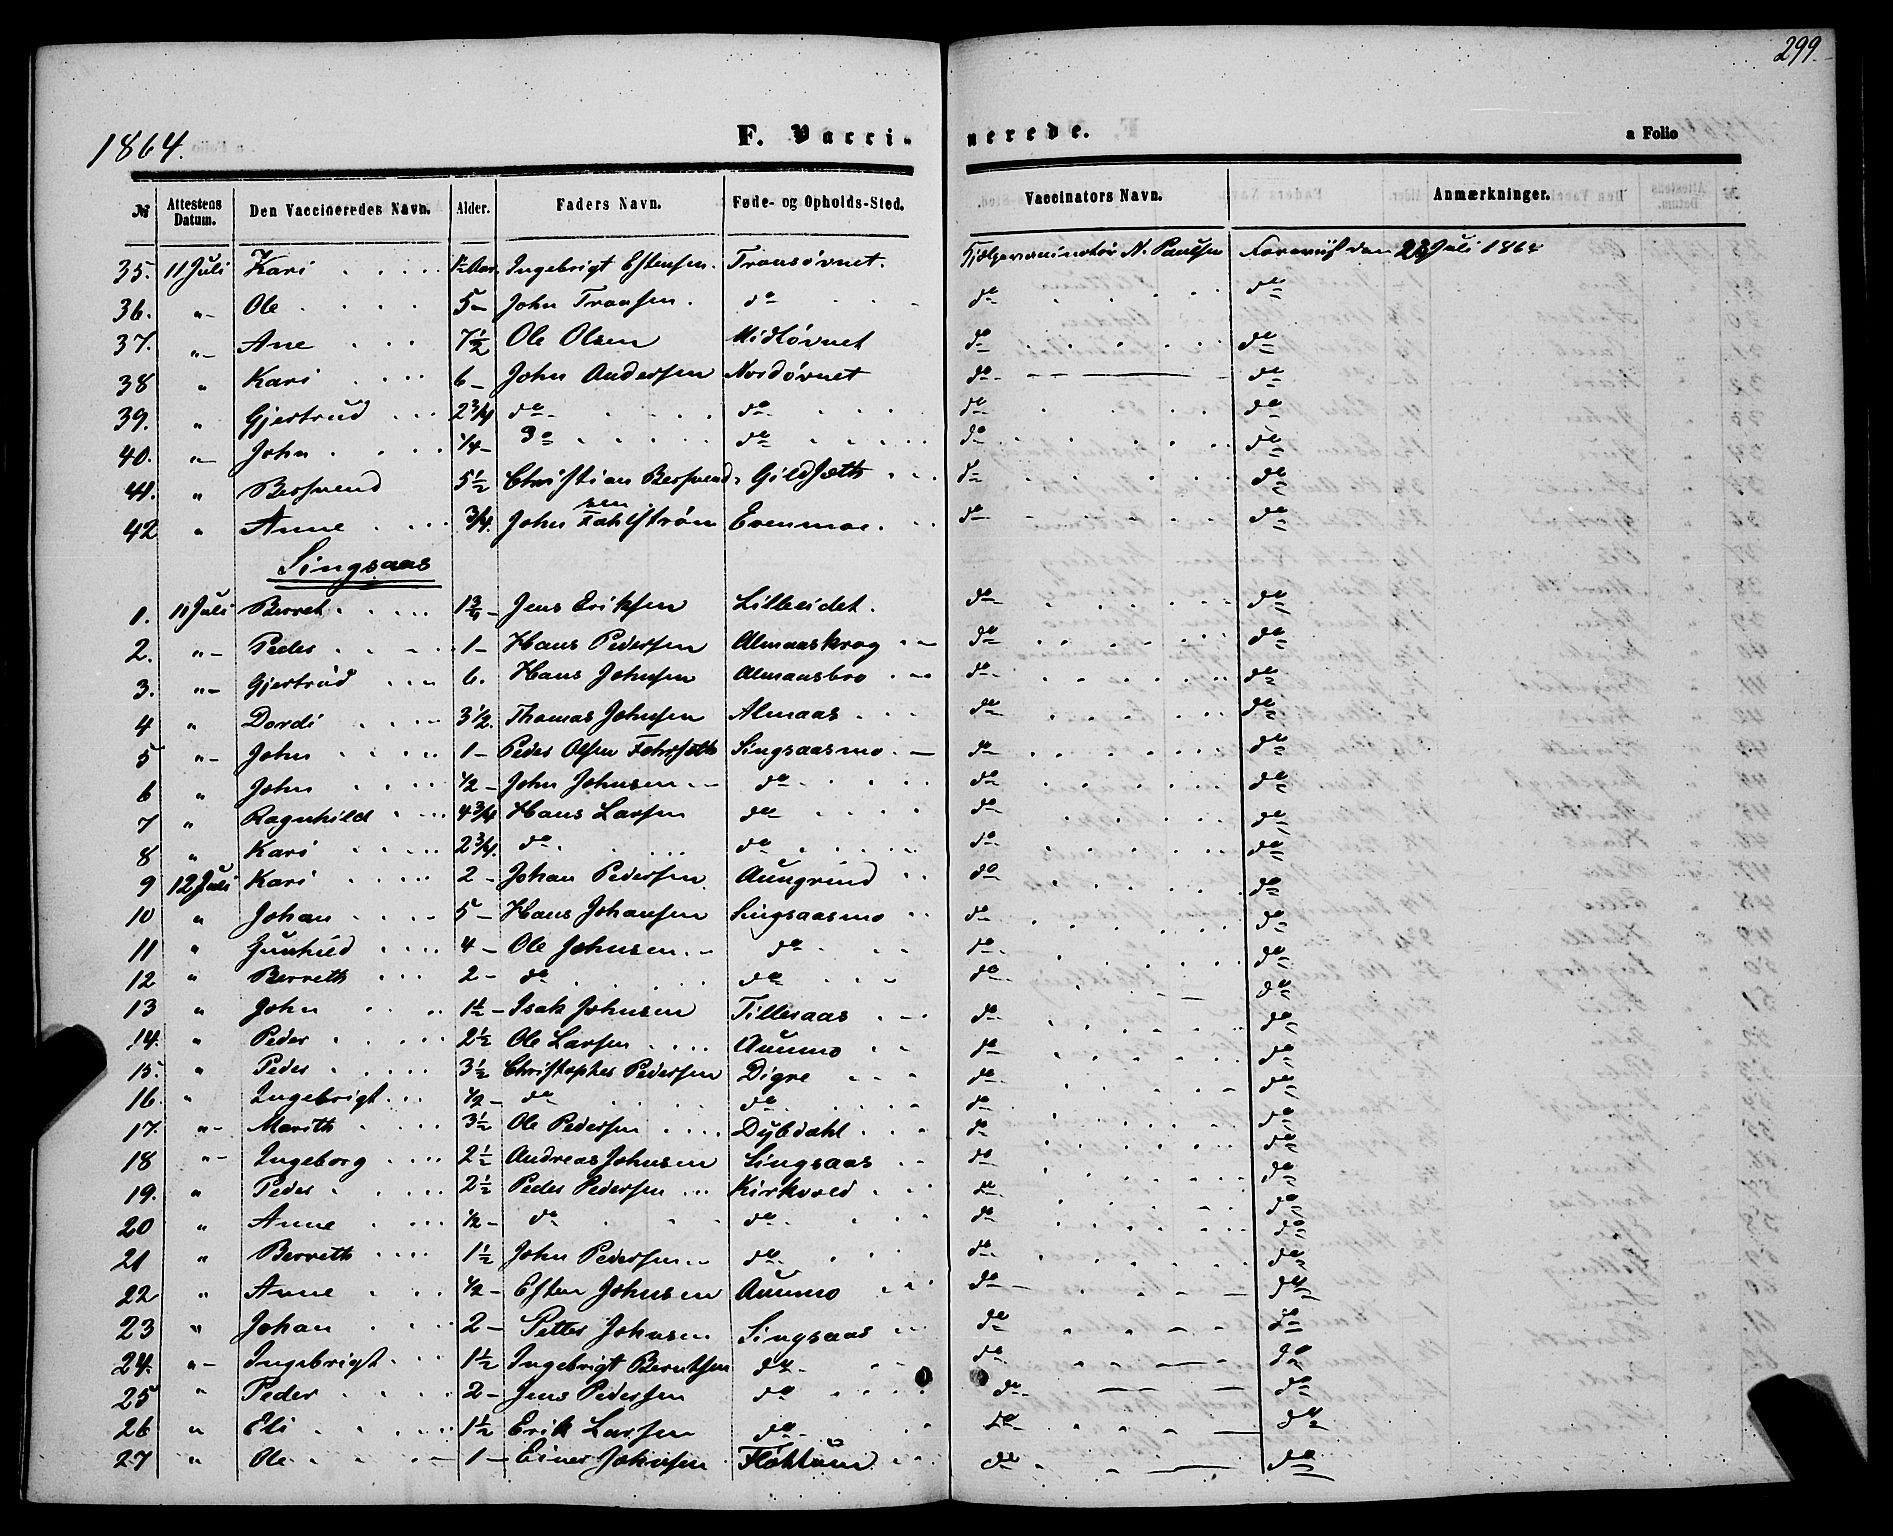 299.
1864. F. Vacci- nerede. a Folio
№ Attestens Datum. Den Vaccineredes Navn. Alder. Faders Navn. Føde- og Opholds-Sted. Vaccinators Navn. Anmærkninger.
35. 11 Juli Kari 1½ Aar. Ingebrigt Estensen. Tronsøvnet. Hjelpevaccinatør N. Paulsen Foreviist den 23 Juli 1864
36. " Ole 5 - John Tronsen. do do do
37. " Ane 7½ Ole Olsen Midtøvnet do do
38 " Kari 6 - John Andersen Nordøvnet do do
39. " Gjertrud 2¾ do do do do
40. " John ¼ - do do do do
41. " Bersvend 5½ Christian Bersvend- Gildsæth do do
sen
42 " Anne ¾. John Fahlstrøm Evenmoe. do do
Singsaas
1. 11 Juli Berret 1¾ - Jens Eriksen Lilleeidet. do do
2. " Peder 1 - Hans Pedersen Almaaskrog do do
3. " Gjertrud 6. Hans Johnsen Almaasbro do do
4 " Dordi 3½. Thomas Johnsen Almaas do do
5 " John 1 - Peder Olsen Fohrsæth Singsaasmo do do
6 " John ½ - John Johnsen do do do
7 " Ragnhild 4¾ Hans Larsen do do do
8 " Kari 2¾. do do do do
9 12 Juli Kari 2 - Johan Pedersen Aungrind do do
10 " Johan 5 - Hans Johansen Singsaasmo do do
11 " Gunhild 4 - Ole Johnsen do do do
12 " Berreth 2 - do do do do
13 " John 1½ - Isak Johnsen Tillesaas do do
14. " Peder 2½ Ole Larsen Aunmo do do
15. " Peder 3½ Christopher Pedersen Digre do do
16. " Ingebrigt ½ - do do do do
17. " Marith 3½ Ole Pedersen Dybdahl do do
18 " Ingeborg 2½ Andreas Johnsen Singsaas do do
19. " Peder 2½ Peder Pedersen Kirkvold do do
20 " Anne ½ - do do do do
21 " Berreth 1½ John Pedersen do do do
22 " Anne ½ - Esten Johnsen Aunmo do do
23 " Johan 2 - Petter Johnsen Singsaas do do
24. " Ingebrigt 1½ Ingebrigt Berntsen do do do
25 " Peder 2 - Jens Pedersen do do do
26 " Eli 1½ Erik Larsen do do do
27 " Ole 1 - Einer Johnsen Flottum do do